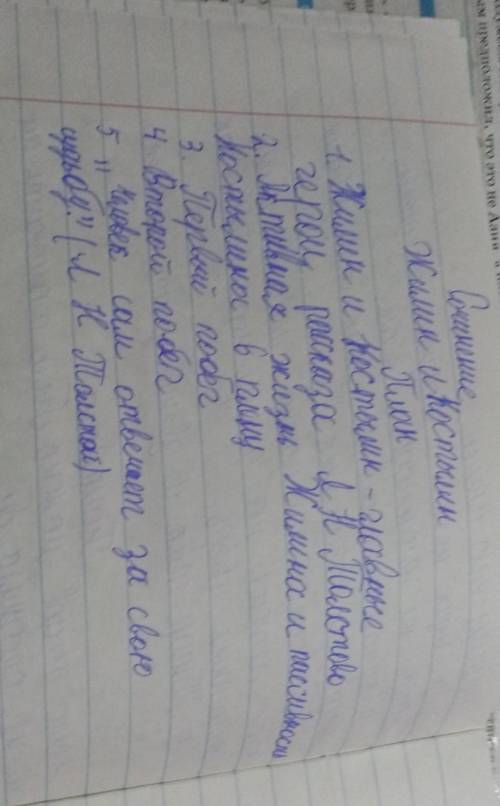 Сочинение
Жилин и Костылин
План
1. Жилин и Костылин - главные
герои рассказа Л Н Толстово
2. Активная жизнь Жилина и пассивность
Костылина в плену
3. Первый побег
4 Второй побег
5 "Человек сам отвечает за свою
судьбу." (Л Н Толстой)
что это не